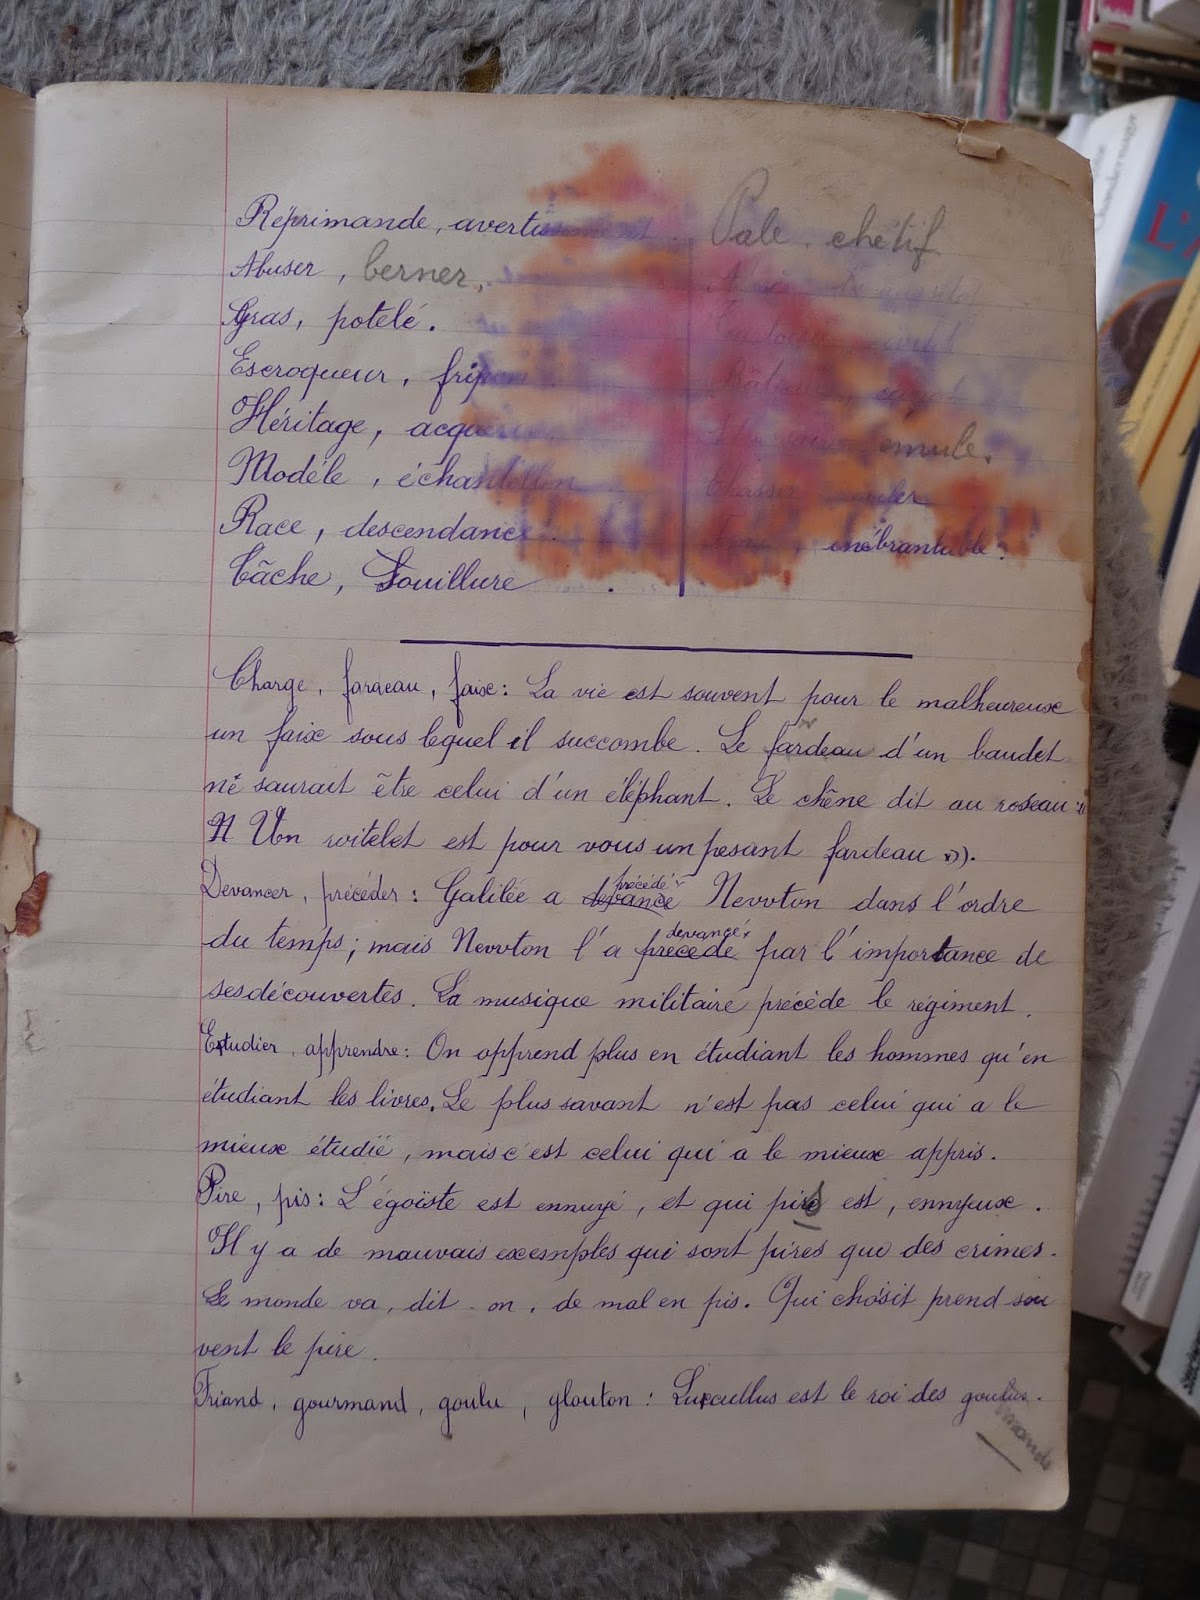 Réprimande, avertissement. Pale, chétif
Abuser, berner,
Gras, potelé.
Escroqueur, fripon
Héritage, acquérir émule.
Modèle, échantillon Chasser
Race, descendance inébranlable.
Tâche, Souillure.
Charge, fardeau, faix: La vie est souvent pour le malheureux
un faix sous lequel il succombe. Le fardeau d'un baudet
ne saurait être celui d'un éléphant. Le chêne dit au roseau:"
Un roitelet est pour vous un pesant fardeau ».
Devancer, précéder: Galilée a devancé précédé Nevvton dans l'ordre
du temps; mais Nevvton l'a précédé devancé par l'importance de
ses découvertes. La musique militaire précède le régiment.
Etudier, apprendre: On apprend plus en étudiant les hommes qu'en
étudiant les livres. Le plus savant n'est pas celui qui a le
mieux étudié, mais c'est celui qui a le mieux appris.
Pire, pis: L'égoïste est ennuyé, et qui pis est, ennyeux.
Il y a de mauvais exemples qui sont pires que des crimes.
Le monde va, dit-on, de mal en pis. Qui choisit prend sou
vent le pire.
Friand, gourmand, goulu, glouton: Lucullus est le roi des goulus.